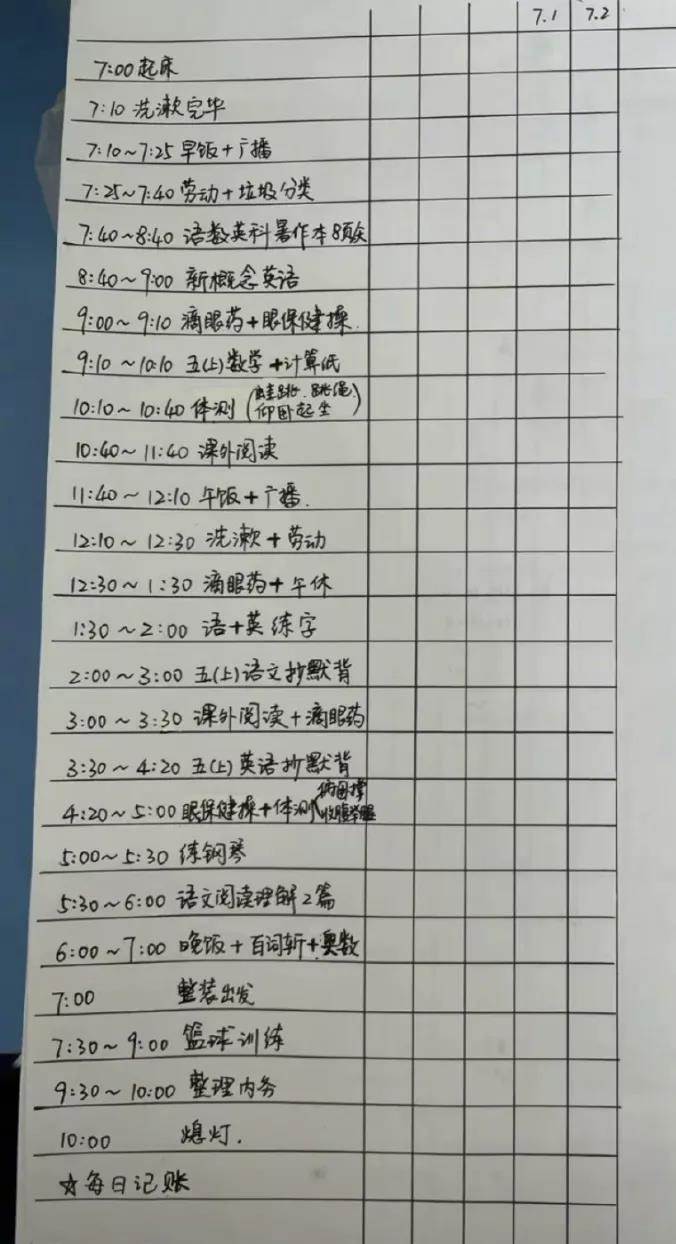 7.1 7.2
7:00 起床
7:10 洗漱完毕
7:10~7:25 早饭+广播
7:25~7:40 劳动+垃圾分类
7:40~8:40 语数英科暑作本8页
8:40~9:00 新概念英语
9:00~9:10 滴眼药+眼保健操.
9:10~10:10 五(上)数学+计算纸
10:10~10:40 体测(蛙跳.跳绳.
仰卧起坐)
10:40~11:40 课外阅读
11:40~12:10 午饭+广播.
12:10~12:30 洗漱+劳动
12:30~1:30 滴眼药+午休
1:30~2:00 语+英练字
2:00~3:00 五(上)语文抄默背
3:00~3:30 课外阅读+滴眼药
3:30~4:20 五(上)英语抄默背
4:20~5:00 眼保健操+体测(俯卧撑
收腹举腿
5:00~5:30 练钢琴
5:30~6:00 语文阅读理解2篇
6:00~7:00 晚饭+百词斩+奥数
7:00 整装出发
7:30~9:00 篮球训练
9:30~10:00 整理内务
10:00 熄灯.
☆每日记账